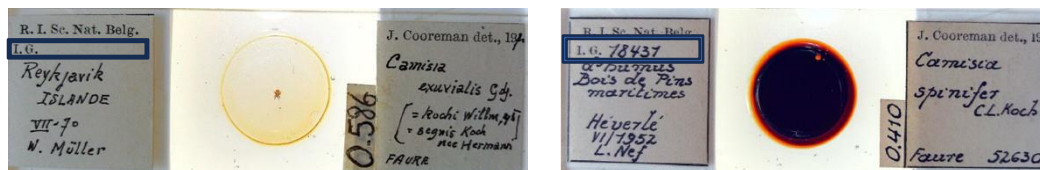 R. I. Sc. Nat. Belg.
I. G.
Reykjavik
ISLANDE
VII-70
W. Müller
0.586
J. Cooreman det., 197
Camisia
exuvialis Gdj.
= kochi Willm,
= segnis Koch
nec Hermann
FAURE
R. I. Sc. Nat. Belg.
I. G. 18431
à humus
Bois de Pins
maritimes
Héverlé
VI/1952
L. Nef
0.410
J. Cooreman det., 19
Camisia
spinifer
C.L. Koch
Faure 52630